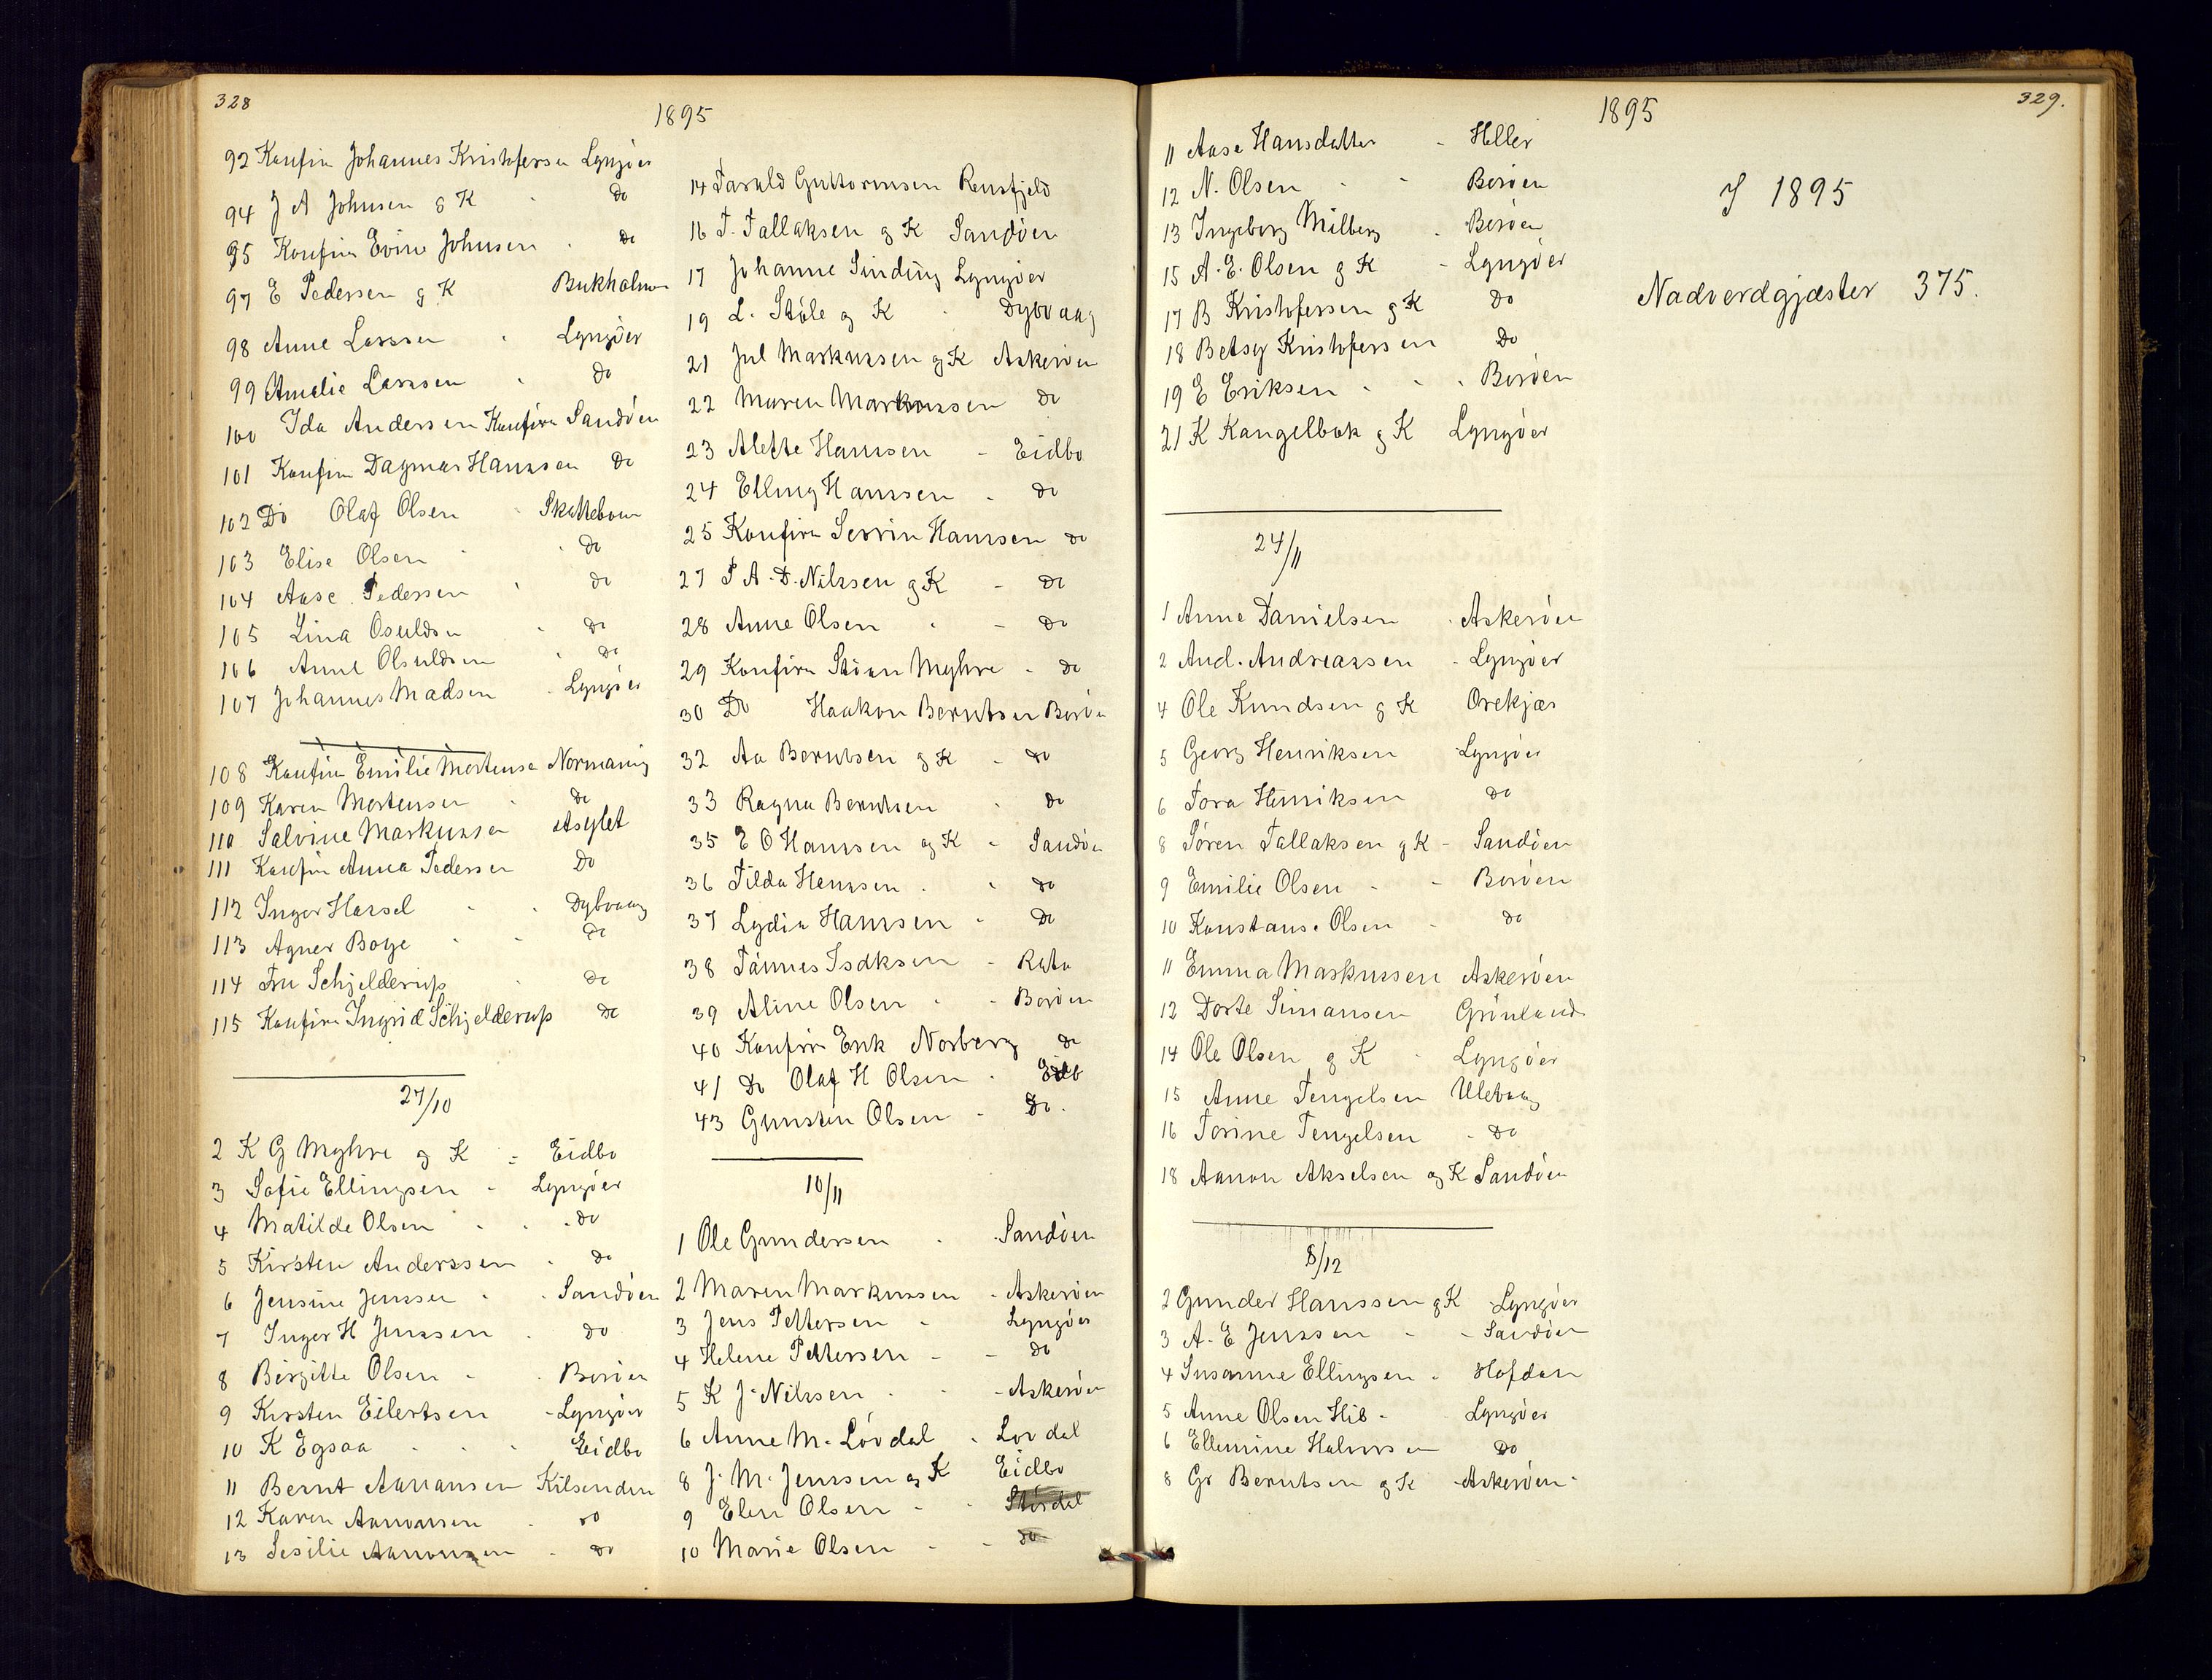 328
1895
92 Konfirm Johannes Kristofersen Lyngöer
94 J A Johnsen & K - Do
95 Konfirm Evine Johnsen - Do
97 E Pedersen & K Bukholmen
98 Anne Larssen - Lyngöer
99 Amalie Larssen - Do
100 Ida Anderssen Konfirm Sandöen
101 Konfirm Dagmar Hanssen Do
102 Do Olaf Olsen - Skatteboen
103 Elise Olsen - - Do
104 Aase Pedersen - Do
105 Lina Osuldsen - Do
106 Anne Olsuldsen - Do
107 Johannes Madsen - Lyngöer
108 Konfirm Emilie Mortense Normanvig
109 Karen Mortensen - Do
110 Salvine Markussen Asylet
111 Konfirm Anna Pedersen Do
112 Inger Hassel - - Dybvaag
113 Agner Boye - - Do
114 Fru Schjelderup - Do
115 Konfirm Ingrid Schjelderup Do
27/10
2 K G Myhre og K - Eidbo
3 Sofie Ellingsen - Lyngöer
4 Matilde Olsen - - Do
5 Kirsten Anderssen - Do
6 Jensine Jenssen - - Sandöen
7 Inger H Jenssen - Do
8 Birgitte Olsen - - Boröen
9 Kirsten Eilertsen - Lyngöer
10 K Egsaa - - - Eidbo
11 Bernt Aanansen Kilsenden
12 Karen Aanonsen - do
13 Sesilie Aanonsen - do
14 Tarald Guttormsen Rensfjeld
16 T. Tallaksen og K Sandöen
17 Johanne Sinding Lyngöer
19 L. Stöle og K - Dybvaag
21 Jul Markussen og K Askeröen
22 Maren Markussen Do
23 Alette Hanssen - Eidbo
24 Elling Hanssen - Do
25 Konfirm Serrin Hanssen do
27 P A. D. Nilssen og K - Do
28 Anne Olsen - - Do
29 Konfirm Stian Myhre - Do
30 Do Haakon Berntsen Boröe
32 Aa Berntsen og K - do
33 Ragna Berntsen - do
35 E O Hanssen og K - Sandöe
36 Tilda Hanssen - - do
37 Lydia Hanssen - Do
38 Tönnes Isaksen - Rota
39 Aline Olsen - - Boröen
40 Konfirm Erik Norberg do
41 Do Olaf H Olsen - Eidb
43 Gunsten Olsen - Do.
10/11
1 Ole Gundersen - Sandöen
2 Maren Markussen - Askeröen
3 Jens Pettersen - Lyngöer
4 Helene Pettersen - - do
5 K J. Nilssen - - - Askeröen
6 Anne M. Lövdal - Lövdal
8 J. M. Jenssen og K Eidbo
9 Elen Olsen - - Stördal
10 Marie Olsen - - do
1895
329.
11 Aase Hansdatter - Heller
12 N. Olsen - - Boröen
13 Ingeborg Milberg - Boröen
15 A. E. Olsen og K - Lyngöer
17 B Kristofersen og K Do
18 Betsy Kristofersen Do
19 E Eriksen - - - Boröen
21 K Kangelbak og K Lyngöer
24/11
1 Anne Danielsen - Askeröen
2 And. Andreassen - Lyngöer
4 Ole Knudsen og K Orekjær
5 Georg Henriksen Lyngöer
6 Tora Henriksen do
8 Sören Tallaksen og K - Sandöen
9 Emilie Olsen - - Boröen
10 Konstanse Olsen - do
11 Emma Markussen Askeröen
12 Dorte Simonsen Grönland
14 Ole Olsen og K - Lyngöer
15 Anne Tengelsen Ulevaag
16 Torine Tengelsen - Do
18 Aanon Akselsen og K Sandöen
8/12
2 Gunder Hanssen og K - Lyngöer
3 A. E Jenssen - - Sandöen
4 Susanne Ellingsen - Hofdan
5 Anne Olsen Hib - Lyngöer
6 Ellemine Halvorsen Do
8 Gr Berntsen og K - Askeröen -
I 1895
Nadverdgjæster 375.